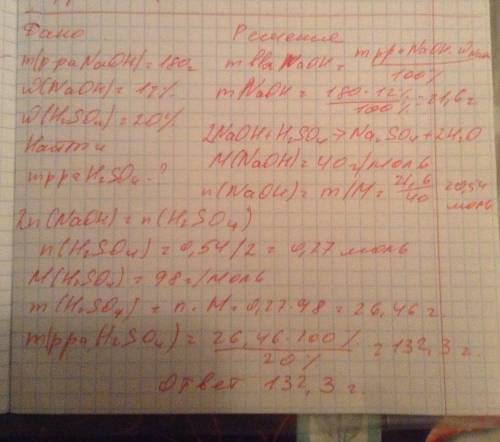 Дано
m(р-ра NaOH) = 180г
ω(NaOH) = 12%
ω(H₂SO₄) = 20%
Найти
mрра H₂SO₄ - ?
Решение
m ва NaOH = mрра NaOH · ω / 100%
m NaOH = 180 · 12% / 100% = 21,6 г
2NaOH + H₂SO₄ → Na₂SO₄ + 2H₂O
M(NaOH) = 40 г/моль
n(NaOH) = m/M = 21,6 / 40 = 0,54 моль
2n(NaOH) = n(H₂SO₄)
n(H₂SO₄) = 0,54/2 = 0,27 моль
M(H₂SO₄) = 98 г/моль
m(H₂SO₄) = n · M = 0,27 · 98 = 26,46 г.
m(рра H₂SO₄) = 26,46 · 100% / 20% = 132,3 г.
Ответ 132,3 г.